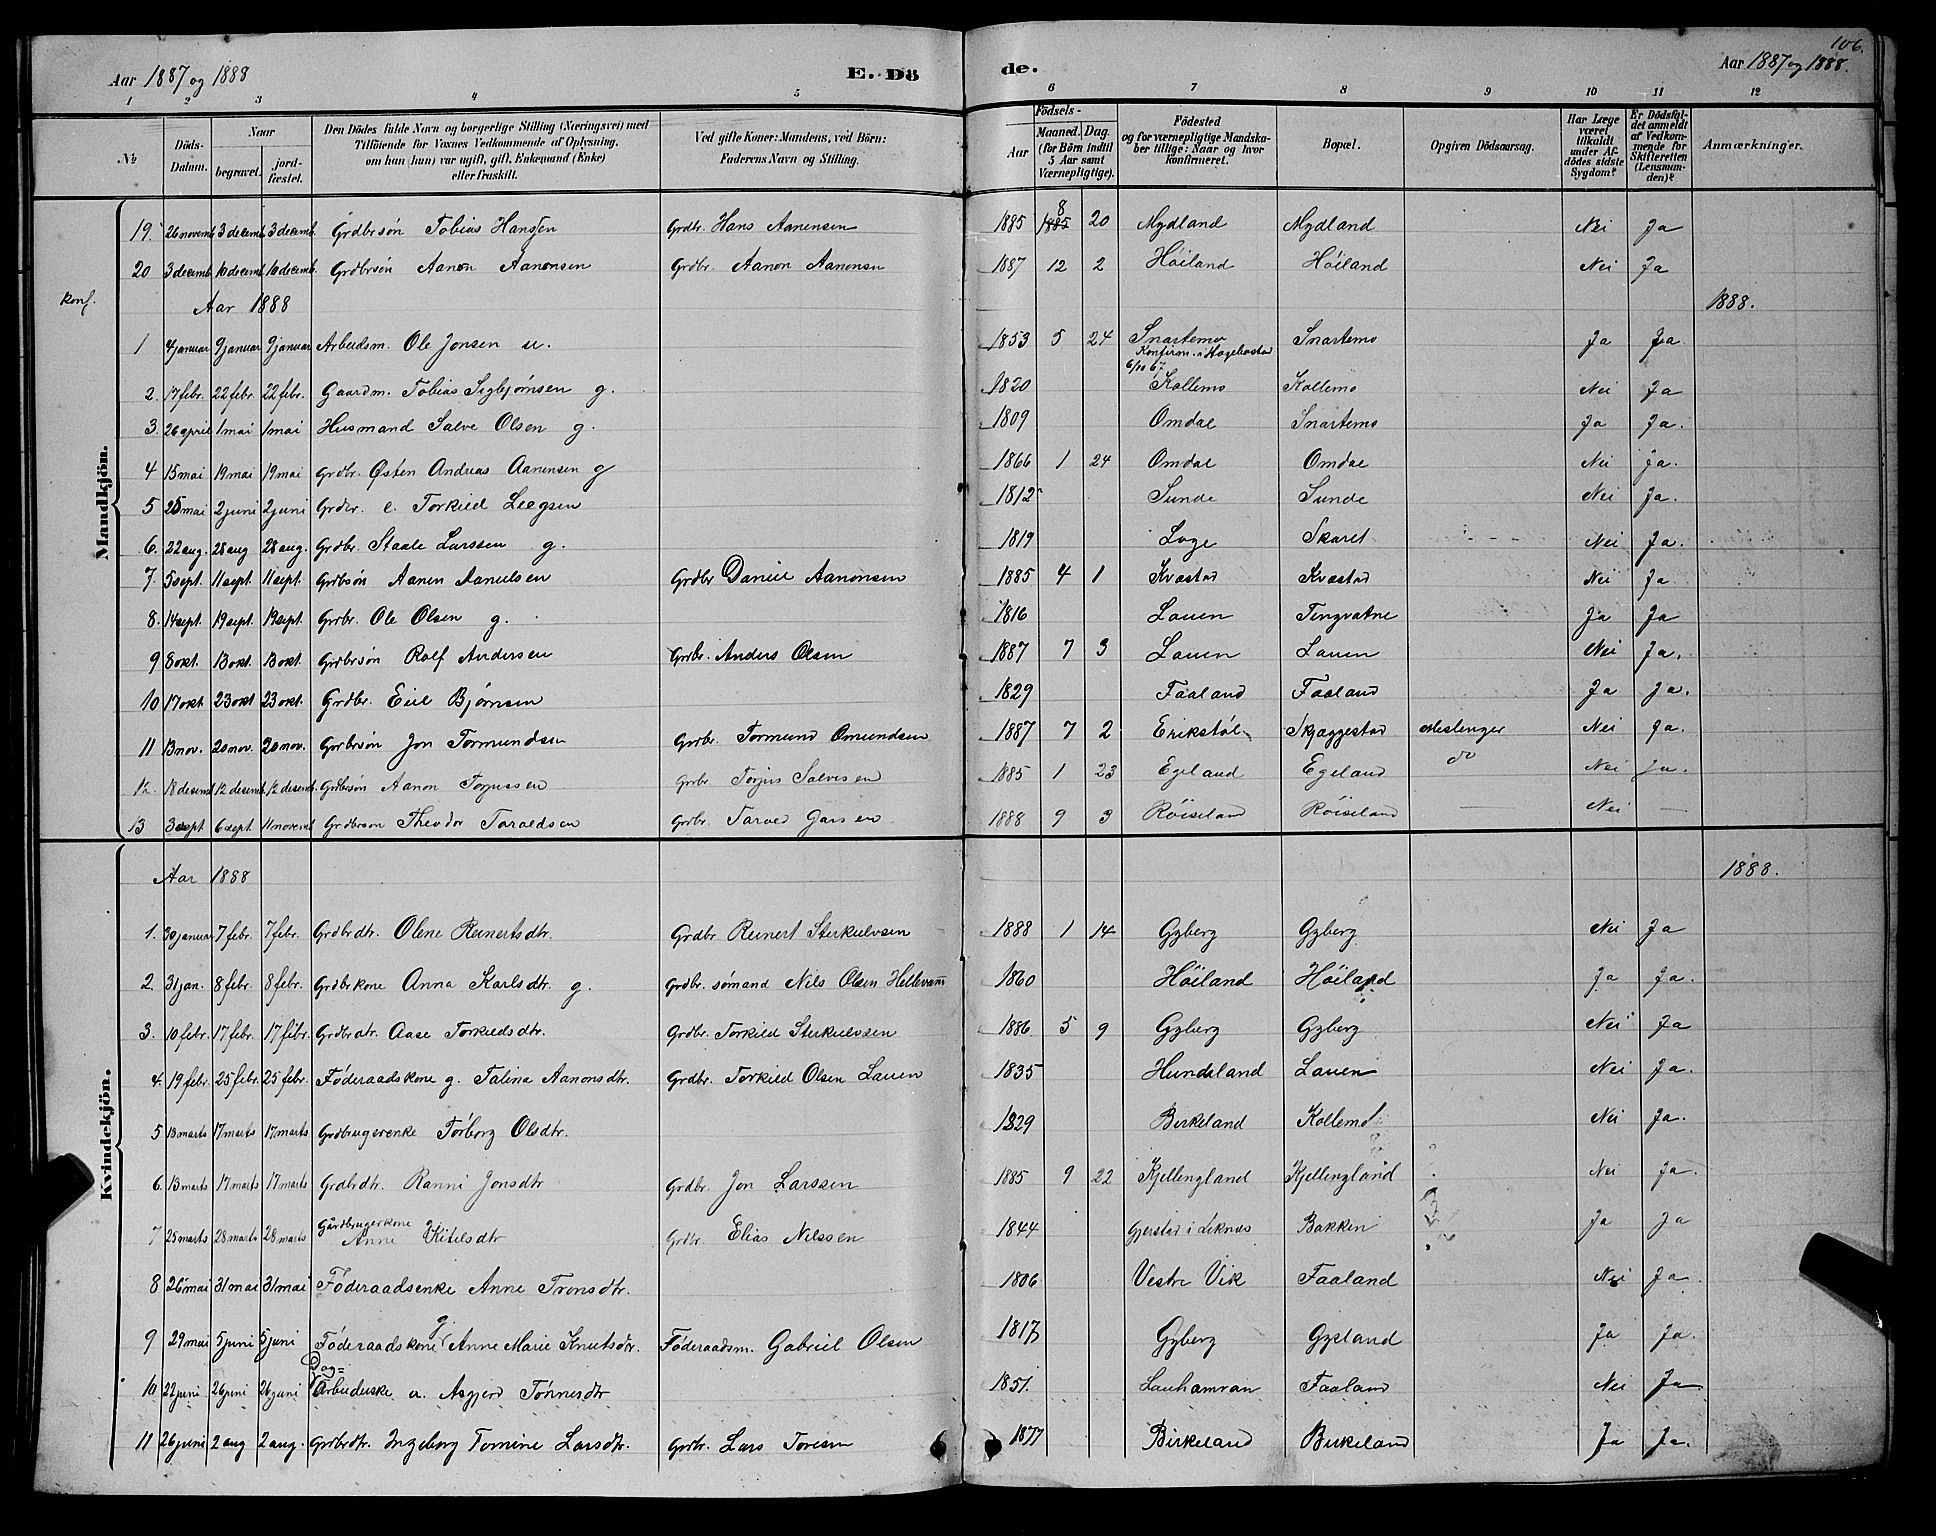 106.
Aar 1887 og 1888 E. Dö de. Aar 1887 og 1888.
1 2 3 4 5 6 7 8 9 10 11 12
№ Döds-Datum. Naar begravet. jord-fæstet. Den Dödes fulde Navn og borgerlige Stilling (Næringsvei) med Tilföiende for Voxnes Vedkommende af Oplysning, om han (hun) var ugift, gift, Enkemand (Enke) eller fraskilt. Ved gifte Koner: Mandens, ved Börn: Faderens Navn og Stilling. Födsels- Aar Maaned. Dag. (for Börn indtil 5 Aar samt Værnepligtige). Födested og for værnepligtige Mandskaber tillige: Naar og hvor konfirmeret. Bopæl. Opgiven Dödsaarsag. Har Læge været tilkaldt under Afdödes sidste Sygdom? Er Dödsfaldet anmeldt af Vedkommende for Skifteretten (Lensmanden)? Anmærkninger.
Mandkjön.
19. 26 novemb 3 decemb 3 decemb. Grdbrsön Tobias Hansen Grdbr. Hans Aanensen 1885 8 20 Mydland Mydland Nei Ja
20 3 decemb. 10 decemb. 10 decemb. Grdbrsön Aanon Aanonsen Grdbr. Aanon Aanonsen 1887 12 2 Höiland Höiland Nei Ja
Konf. Aar 1888 1888.
1 4 januar 9 januar 9 januar Arbeidsm. Ole Jonsen u. 1853 5 24 Snartemo Konfirm. i Hægebostad 6/10 67 Snartemo Ja Ja
2. 17 febr. 22 febr. 22 febr. Gaardm. Tobias Sigbjørnsen g. 1820 Kollemo Kollemo Nei Ja
3. 26 april 1 mai 1 mai Husmand Salve Olsen g. 1809 Omdal Snartemo Ja Ja.
4 15 mai 19 mai 19 mai Grdbr. Østen Andreas Aanensen g 1866 1 24 Omdal Omdal Nei Ja.
5 25 mai 2 juni 2 juni Grdbr. e. Torkild Leegsen 1812 Sunde Sunde Nei Ja.
6. 22 aug. 28 aug 28 aug. Grdbr. Staale Larssen g. 1819 Loge Skaret Nei Ja.
7. 5 sept. 11 sept. 11 sept. Grdbrsön Aanen Danielsen Grdbr Daniel Aanonsen 1885 4 1 Kvæstad Kvæstad Nei Ja.
8. 14 sept. 19 sept. 19 sept. Grdbr. Ole Olsen g. 1816 Lauen Tingvatne Ja Ja
9 8 okt. 13 okt. 13 okt. Grdbrsön Rolf Andersen Grdbr. Anders Olsen 1887 7 3 Lauen Lauen Nei Ja.
10 17 okt 23 okt 23 okt. Grdbr. Eiel Bjørnsen 1829 Faaland Faaland Ja Ja.
11 13 nov. 20 nov. 20 nov. Grdbrsön Jon Tormundsen Grdbr. Tormund Omundsen 1887 7 2 Erikstøl Skjæggestad Meslenger Nei Ja.
12. 18 desemb 12 desemb. 12 desemb. Grdbrsön Aanon Torjussen Grdbr Torjus Salvesen 1885 1 23 Egeland Egeland do Nei Ja.
13 3 sept 6 sept. 11 novemb Grdbrsøn Theodor Taraldsen Grdbr. Tarved Garsen 1888 9 3 Röiseland Röiseland Nei
Kvindekjön.
Aar 1888 1888.
1. 30 januar 7 febr. 7 febr. Grdbrdtr. Olene Reinertsdtr. Grdbr Reinert Sterkulvsen 1888 1 14 Gyberg Gyberg Nei Ja
2. 31 jan. 8 febr. 8 febr. Grdbrkone Anna Karlsdtr. g. Grdbr. sømand Nils Olsen Hellevann 1860 Höiland Höiland Ja Ja.
3. 10 febr. 17 febr. 17 febr. Grdbrdtr. Aase Torkildsdtr. Grdbr Torkild Sterkulvssen 1886 5 9 Gyberg Gyberg Nei Ja
4. 19 febr. 25 febr. 25 febr. Føderaadskone g. Talina Aanonsdtr. Grdbr. Torkild Olsen Lauen 1835 Hundsland Lauen Nei Ja.
5 13 marts 17 marts 17 marts Grdbrugerenke Torborg Olsdtr. 1829 Birkeland Kollemo Nei Ja.
6. 13 marts 17 marts 17 marts Grdbrdtr. Ranni Jonsdtr Grdbr. Jon Larssen 1885 9 22 Kjellengland Kjellengland Nei Ja.
7 25 marts 28 marts 28 marts Gårdbrugerkone g Anne Kitelsdtr Grdbr. Elias Nilssen 1844 Gjerstad i Leknæs Bakken Ja Ja
8 26 mai 31 mai 31 mai Føderaadsenke Anne Tronsdtr. 1806 Vestre Vik Faaland Nei Ja.
9 29 mai 5 juni 5 juni Føderaadskone g Anne Marie Knutsdtr. Føderaadsm. Gabriel Olsen 1817 Gyberg Gyeland Ja Ja.
10. 22 juni 26 juni 26 juni Dag= Arbeiderske u. Asgjerd Tønnesdtr 1851. Lauhamran Faaland Nei Ja
11 26 juni 2 aug 2 aug. Grdbrdtr. Ingeborg Tomine Larsdtr. Grdbr. Lars Toresen 1877 Birkeland Birkeland Ja Ja.